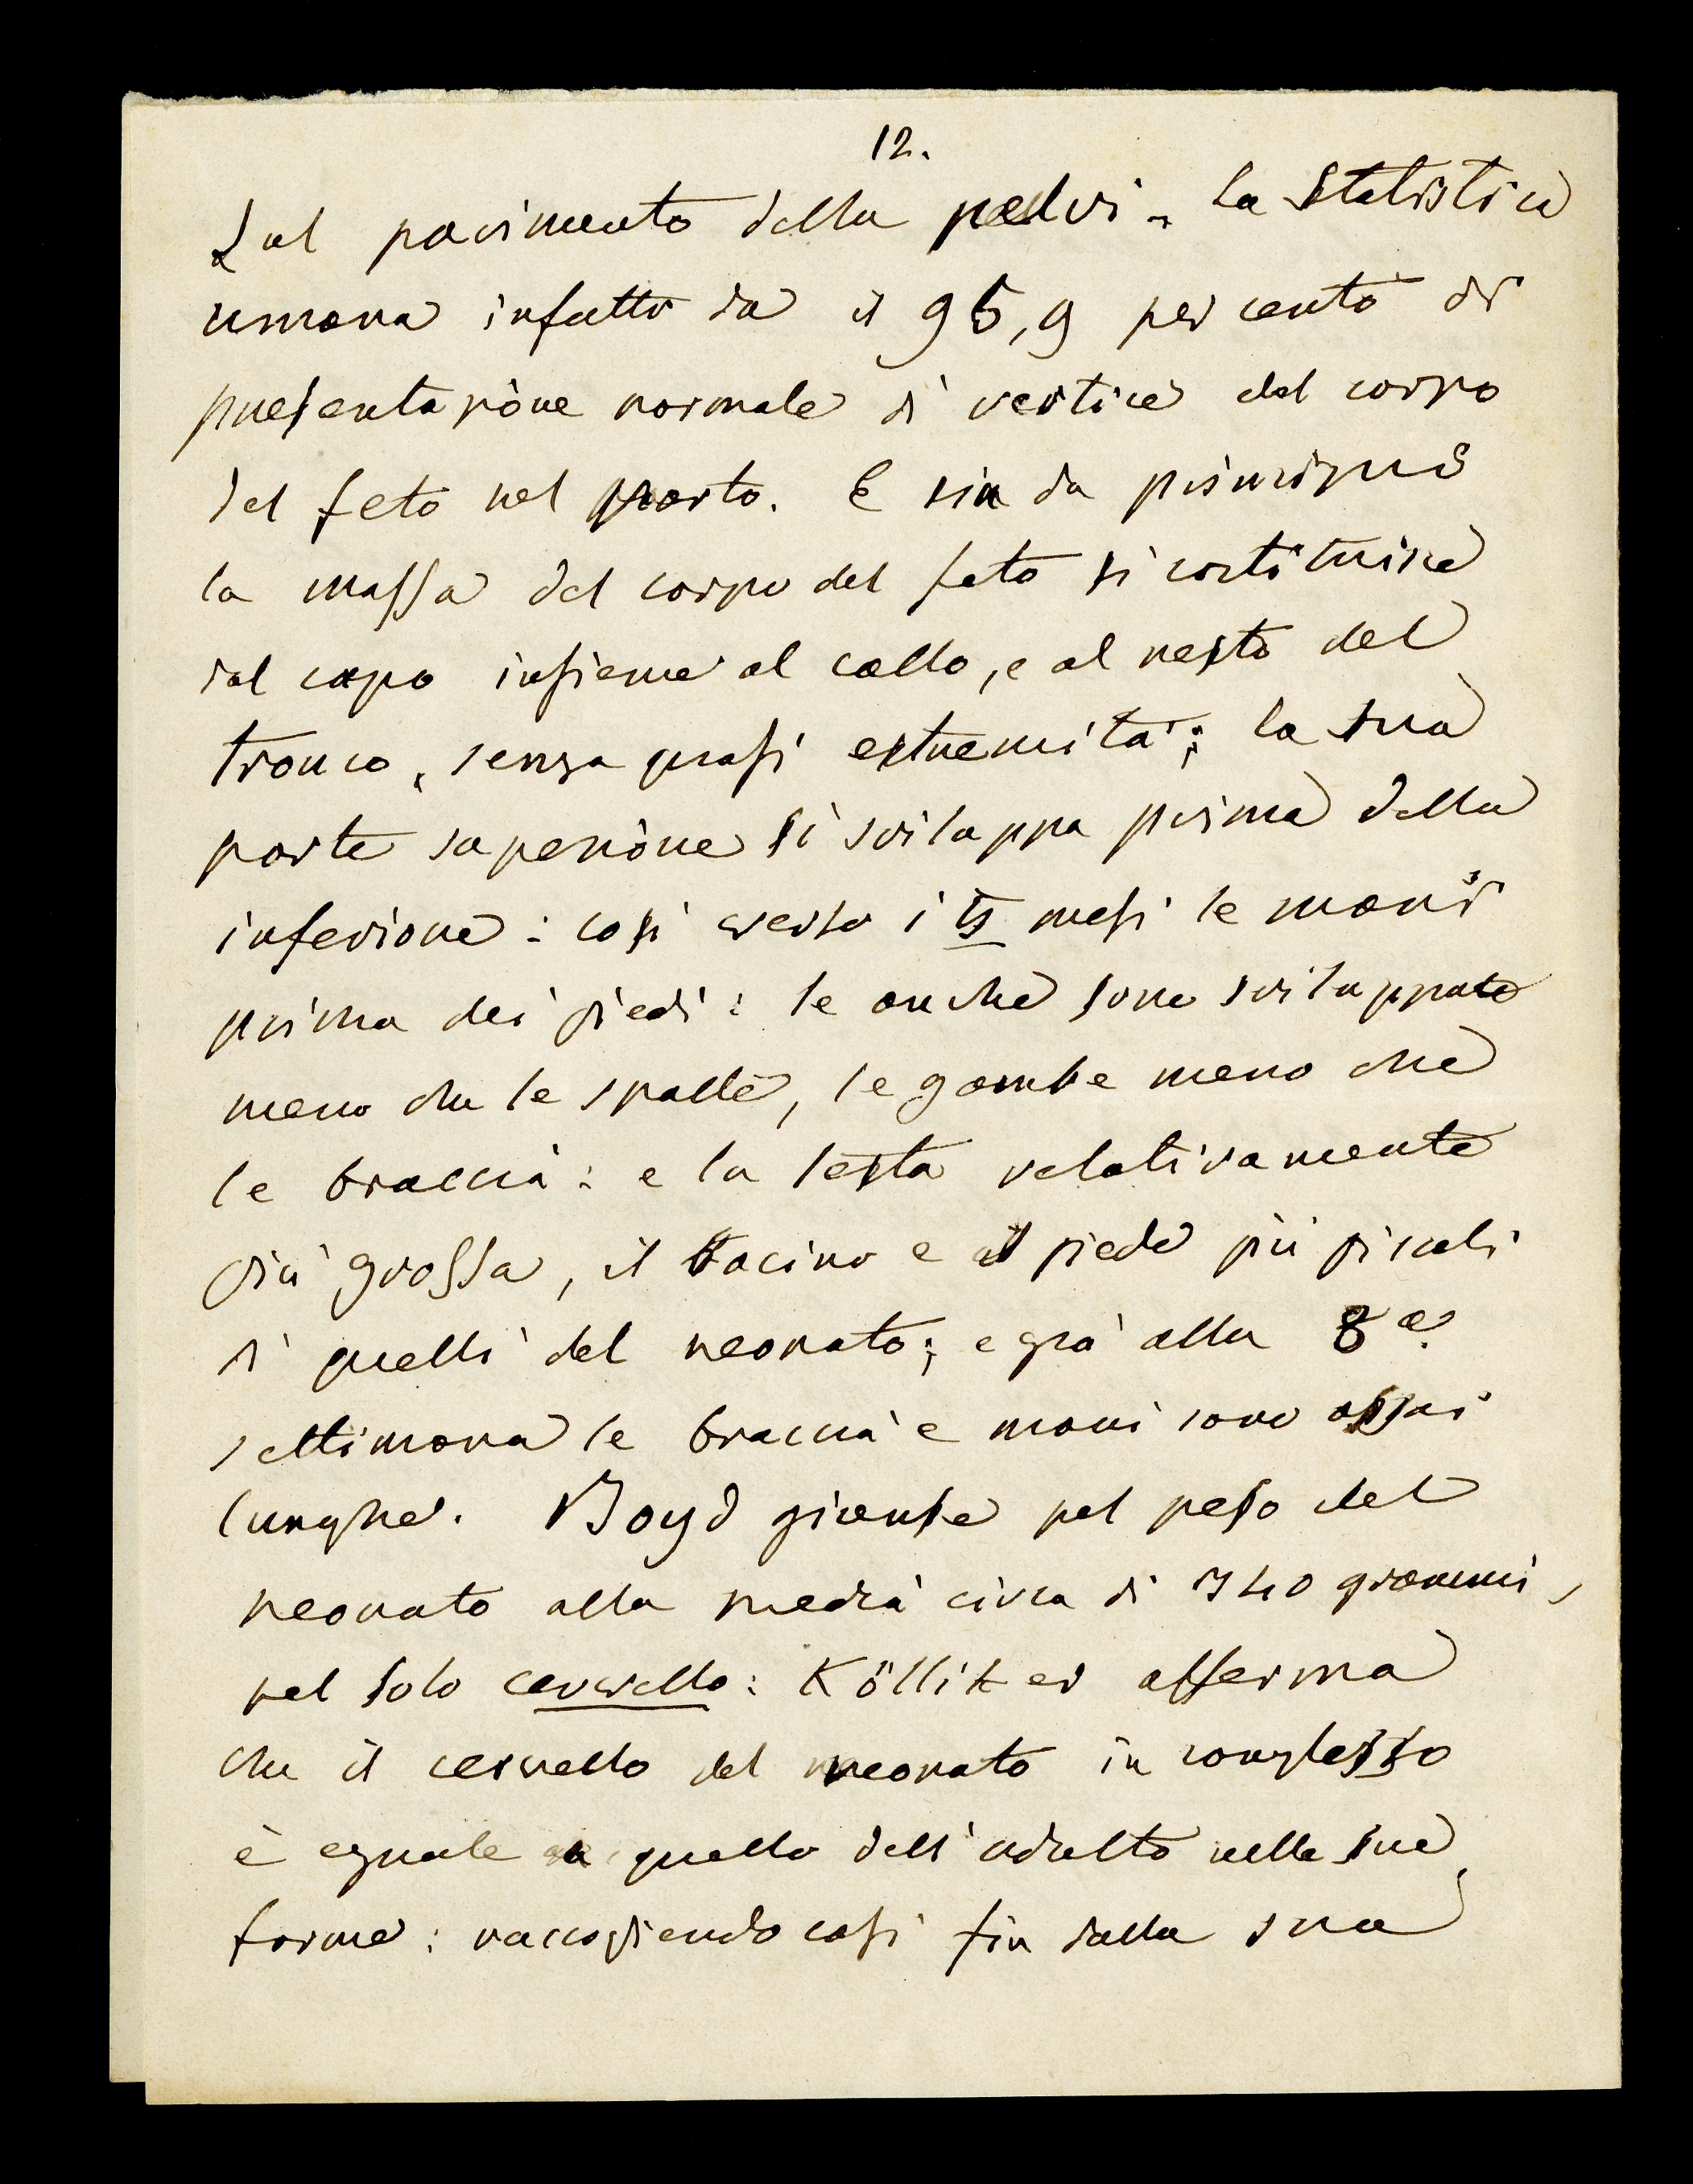 12.
Sul pavimento della pelvi. La statistica
umana infatti dà il 95,9 per cento di
presentazione normale di vertice del corpo
del feto nel parto. E sin da principio
la massa del corpo del feto si costituisce
dal capo insieme al collo, e al resto del
tronco, senza quasi estremità; la sua
parte superiore si sviluppa prima della
inferiore: così verso i mesi le mani
prima dei piedi: le anche sono sviluppate
meno che le spalle, le gambe meno che
le braccia: e la testa relativamente
più grossa, il bacino e il piede più piccoli
di quelli del neonato; e già alla 8a.
settimana le braccia e mani sono assai
lunghe. Boyd giunse pel peso del
neonato alla media circa di 340 grammi,
pel solo cervello: Kölliker afferma
che il cervello del neonato in complesso
è eguale a quello dell'adulto nelle sue
forme: raccogliendo così fin dalla sua